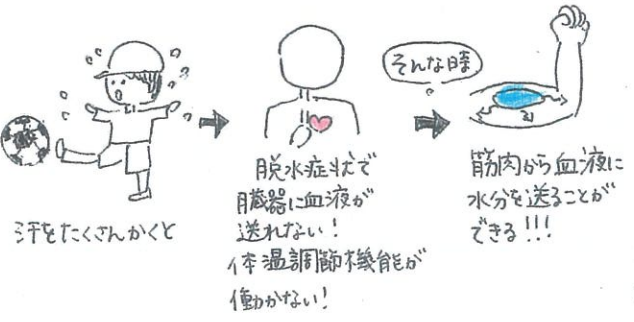 汗をたくさんかくと
脱水症状で
臓器に血液が
送れない!
体温調節機能が
働かない!
そんな時
筋肉から血液に
水分を送ることが
できる!!!